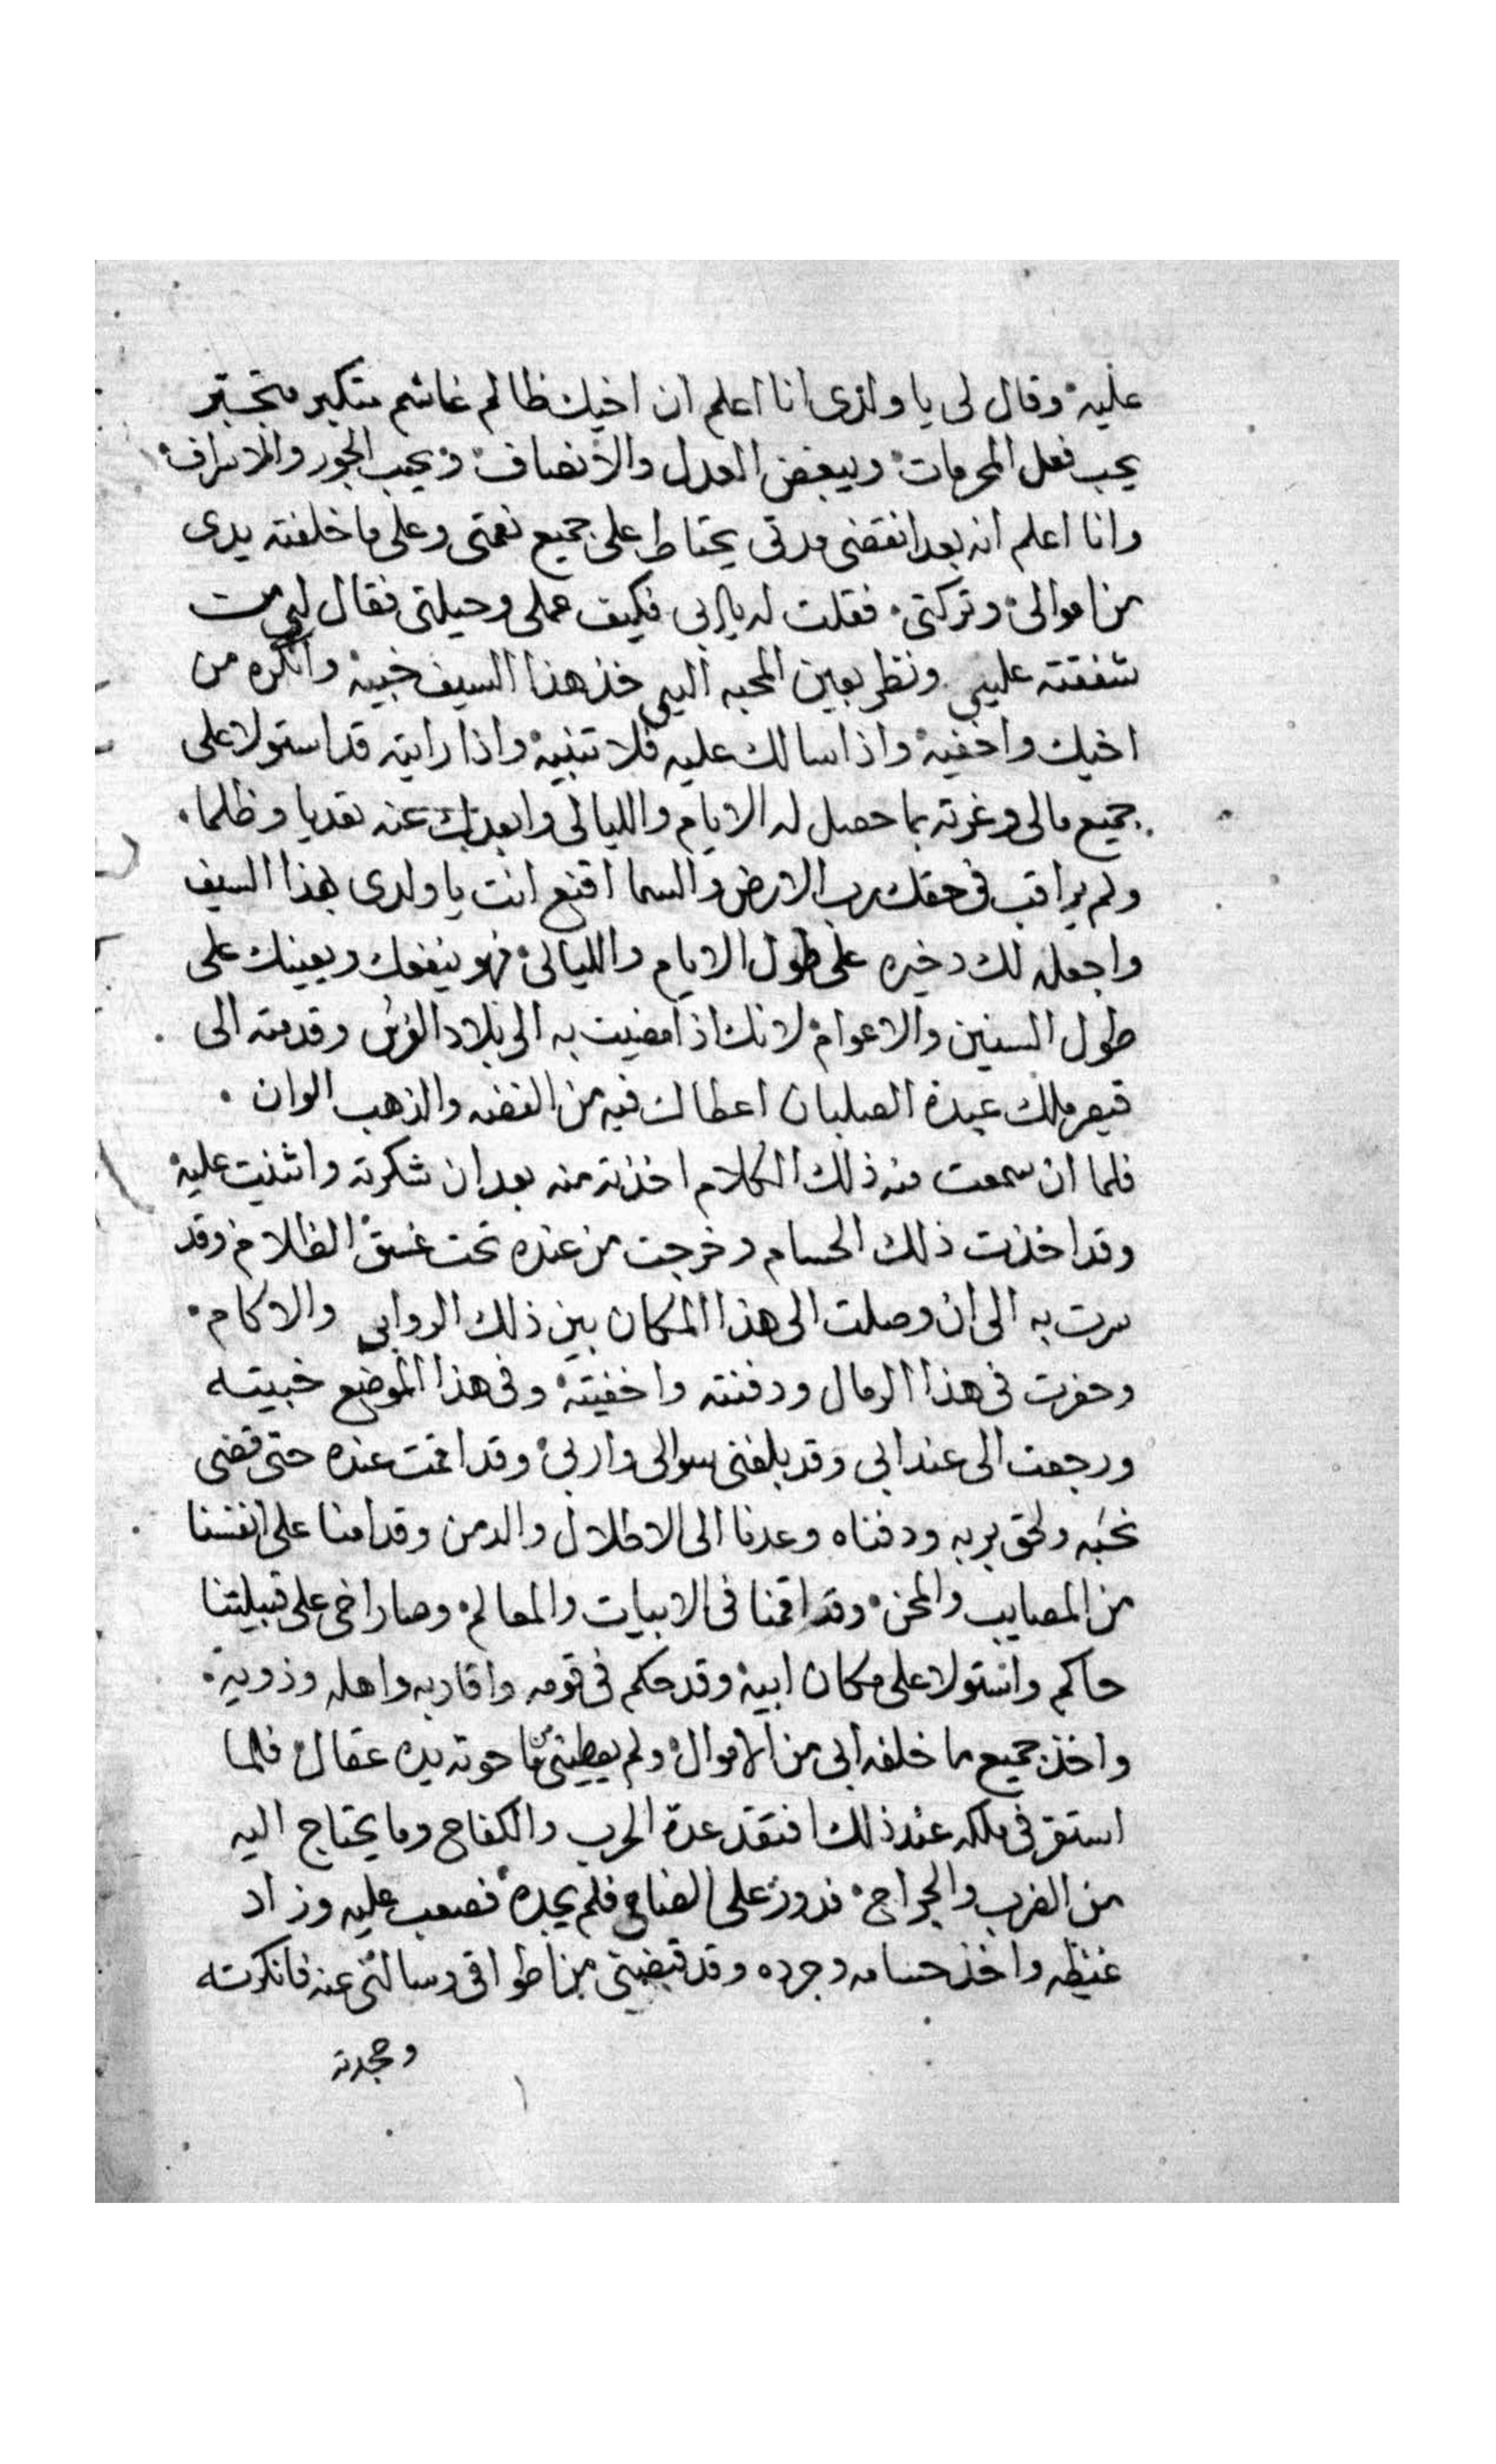 عليه وقال لى يا ولدى انا اعلم ان اخيك ظالم غاشم متكبر متجبر
يحب فعل المحرمات ويبغض العدل والانصاف ويحب الجور والاسراف
وانا اعلم انه بعد انقضى مدتى يحتاط على جميع نعمتى وعلى ما خلفته يدى
من اموالى وتركتى فقلت له يا ابى فكيف عملى وحيلتى فقال لى من
شفقته عليى ونظر بعين المحبه اليى خذ هذا السيف خبيه وانكره من
اخيك واخفيه واذا سالك عليه فلا تنبيه واذا رايته قد استولا على
جميع مالى وغرته بما حصل له الايام والليالى وابعدك عنه تعديا وظلما
ولم يراقب فى حقك رب الارض والسما اقنع انت يا ولدى بهذا السيف
واجعله لك دخيره على طول الايام والليالى فهو ينفعك ويعينك على
طول السنين والاعوام لانك اذا مضيت به الى بلاد الفرس وقدمته الى
قيصر ملك عبدة الصلبان اعطاك فيه من الفضه والذهب الوان
فلما ان سمعت منه ذلك الكلام اخذته منه بعد ان شكرته واثنيت عليه
وقد اخذت ذلك الحسام وخرجت من عنده تحت غسق الظلام وقد
سرت به الى ان وصلت الى هذا المكان بين ذلك الروابى والاكام
وحفرت فى هذا الرمال ودفنته واخفيته وفى هذا الموضع خبيته
ورجعت الى عند ابى وقد بلغنى سوالى واربى وقد اقمت عنده حتى قضى
نحبه ولحق بربه ودفناه وعدنا الى الاطلال والدمن وقد امنا على انفسنا
من المصايب والمحن وقد اقمنا فى الابيات والمعالم وصار اخى على قبيلتنا
حاكم واستولا على مكان ابيه وقد حكم فى قومه واقاربه واهله وذويه
واخذ جميع ما خلفه ابى من الاموال ولم يعطينى ما حوته يده عقال فلما
استقر فى ملكه عند ذلك افتقد عدة الحرب والكفاح وما يحتاج اليه
من الضرب والجراح فدور على الضامى فلم يجده فصعب عليه وزاد
غيظه واخذ حسامه وجرده وقد قبضنى من اطواقى وسالنى عنه فانكرته
وجحدته